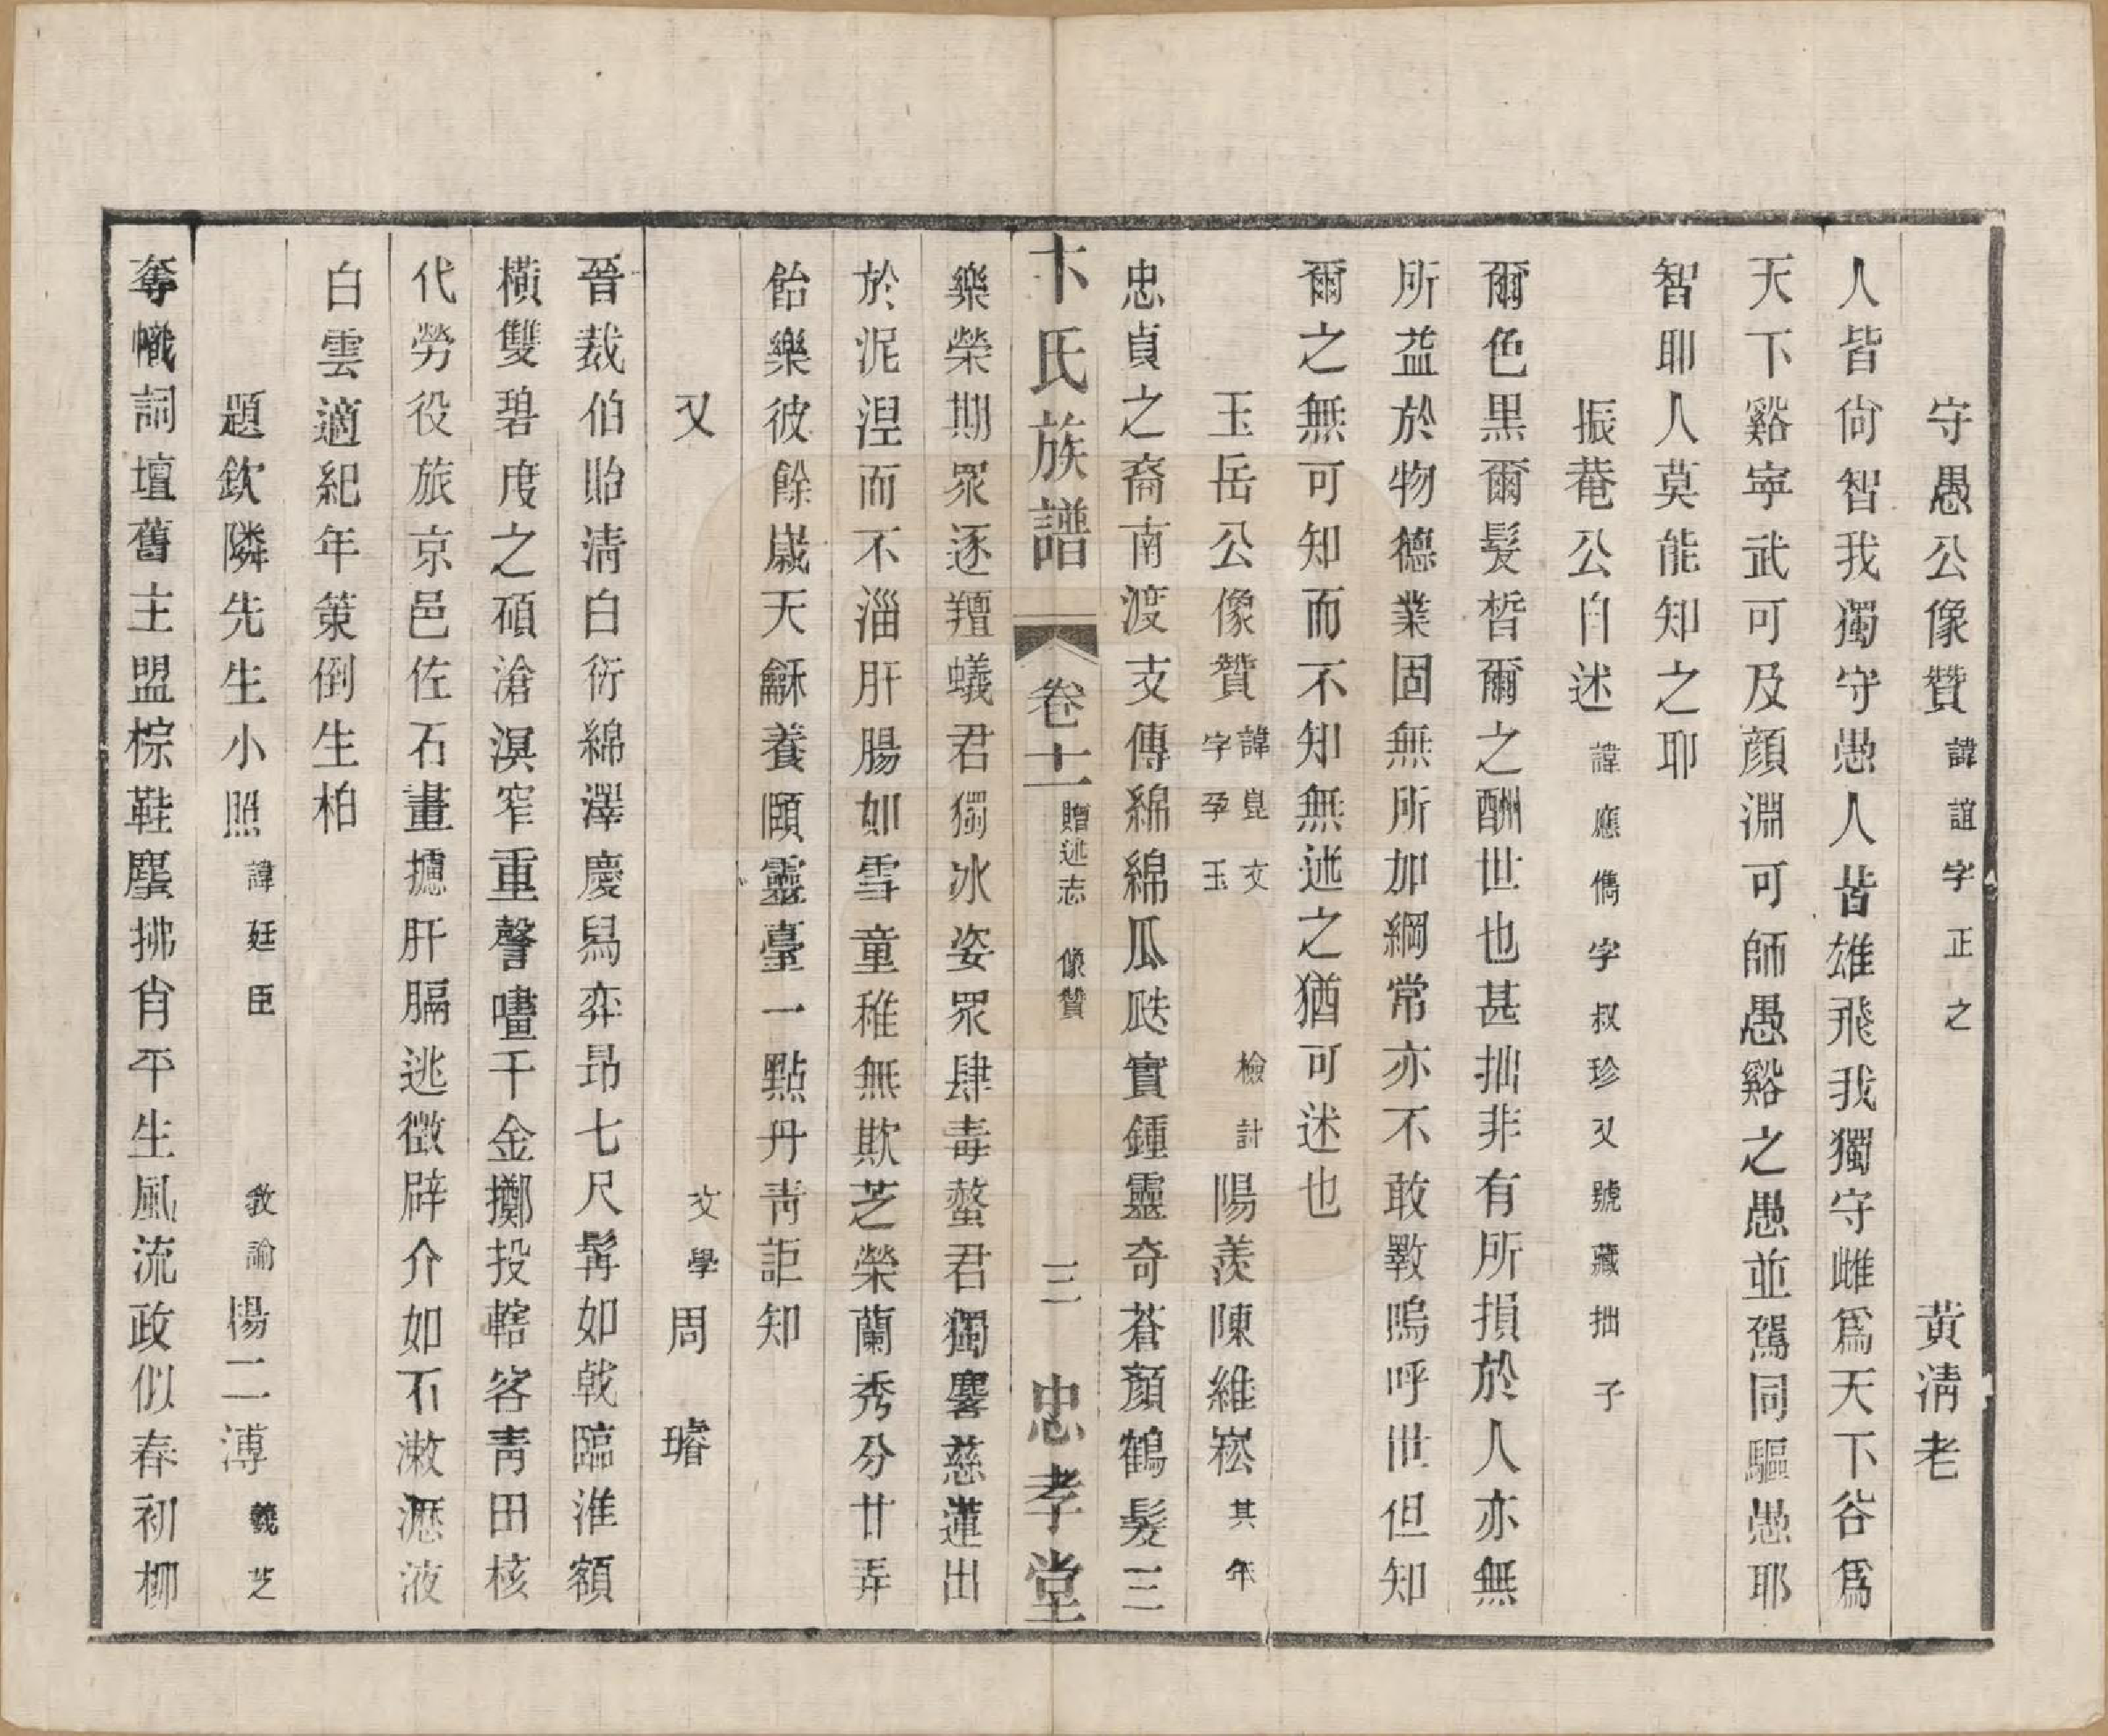 守愚公像贊 諱誼字正之 黃清老
人皆尙智我獨守愚人皆雄飛我獨守雌爲天下谷爲
天下谿寧武可及顏淵可師愚谿之愚並駕同驅愚耶
智耶人莫能知之耶
振菴公自述 諱應儁字叔珍又號藏拙子
爾色黑爾髮皙爾之酬世也甚拙非有所損於人亦無
所益於物德業固無所加綱常亦不敢斁嗚呼世但知
爾之無可知而不知知無述之猶可述也
玉岳公像贊 諱崑文字孕玉 檢討陽羨陳維崧其年
忠貞之裔南渡支傳綿綿瓜瓞實鍾靈奇蒼顏鶴髮三
卞氏族譜 卷十一 贈述志 像贊 三 忠孝堂
樂榮期眾逐羶蟻君獨冰姿眾肆毒螫君獨麐慈蓮出
於泥涅而不淄肝腸如雪童稚無欺芝榮蘭秀分甘弄
飴樂彼餘歲天龢養頤靈臺一點丹青詎知
又 文學周璿
晉裁伯貽清白衍綿澤慶舄弈昂七尺髯如戟臨淮額
橫雙碧度之碩滄溟窄重謦嚍千金擲投轄客青田核
代勞役旅京邑佐石畫攄肝膈逃徵辟介如石漱瀣液
白雲適紀年策倒生柏
題欽隣先生小照 諱廷臣 教諭陽二溥羲芝
奪幟詞壇舊主盟棕鞋麈拂肖平生風流政似春初柳